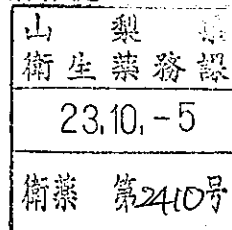 山梨県
衛生薬務課
23.10.-5
衛薬 第2410号